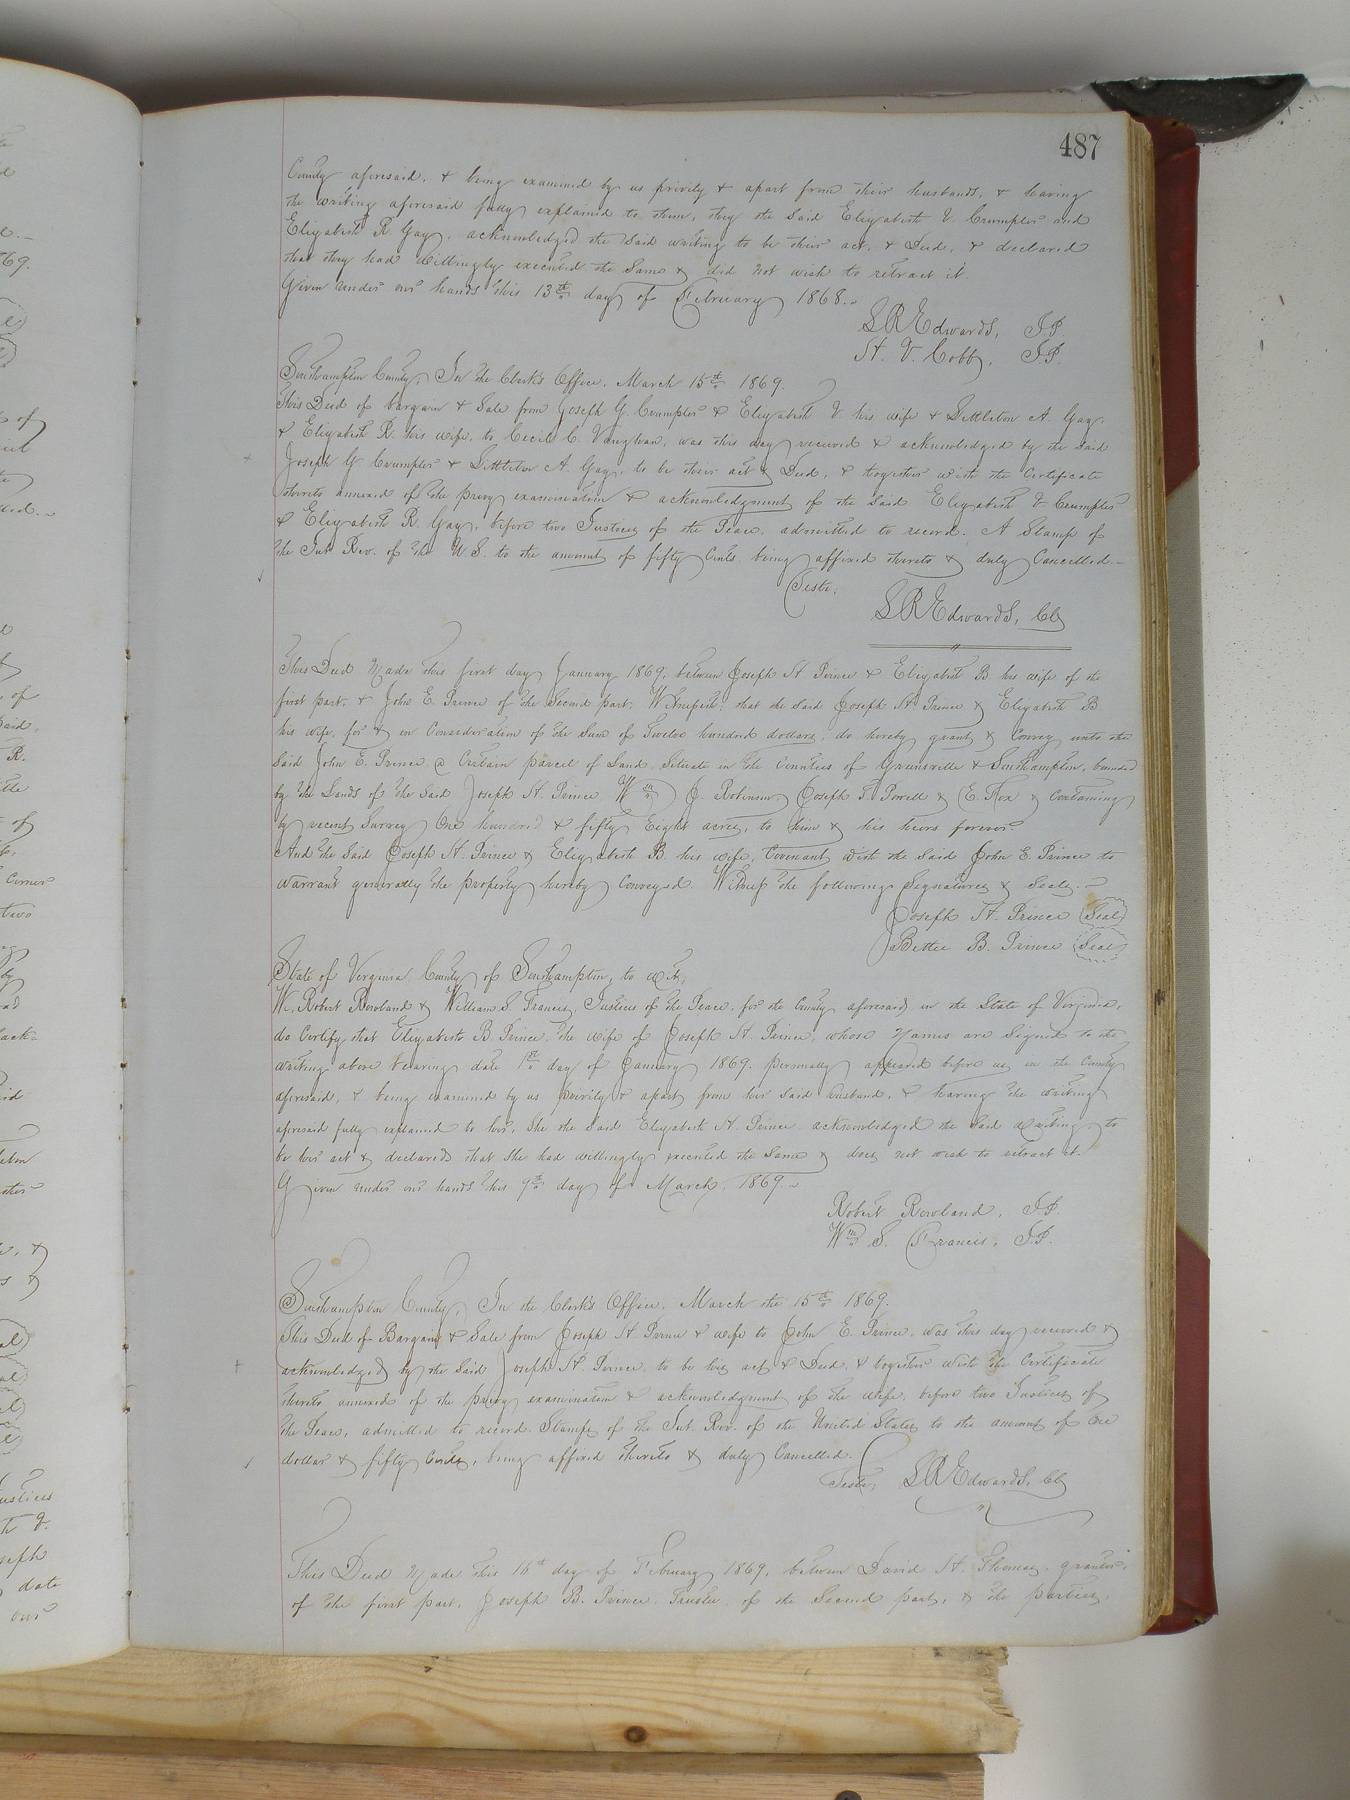 487
County aforesaid, & being examined by us privily & apart from their husbands, & having
the writing aforesaid fully explained to them, they the said Elizabeth V. Crumpler and
Elizabeth R. Gay, acknowledged the said writing to be their act, & Deed, & declared
that they had willingly executed the same & did not wish to retract it.
Given under our hands this 13th day of February 1868.
L R Edwards, J.P.
H. V. Cobb, J.P.
Southampton County, In the Clerk's Office, March 15th 1869.
This Deed of bargain & Sale from Joseph G. Crumpler & Elizabeth V. his wife & Littleton A. Gay,
& Elizabeth R. his wife, to Cecil C. Vaughan, was this day received & acknowledged by the said
Joseph G Crumpler & Littleton A. Gay, to be their act & Deed, & together with the Certificate
thereto annexed of the privy examination & acknowledgment of the said Elizabeth V Crumpler
& Elizabeth R. Gay, before two Justices of the Peace, admitted to record. A Stamp of
the Int. Rev. of the U.S. to the amount of fifty Cents being affixed thereto & duly Cancelled.
Teste,
L R Edwards, Clk
This Deed Made this first day January 1869, between Joseph H Prince & Elizabeth B his wife of the
first part, & John E. Prince of the Second part, Witnesseth: that the said Joseph H Prince & Elizabeth B
his wife, for & in Consideration of the Sum of Twelve hundred dollars, do hereby grant & Convey unto the
said John E. Prince a Certain parcel of Land, Situate in the Counties of Greensville & Southampton, bounded
by the Lands of the said Joseph H. Prince Wm J. Robinson, Joseph T. Powell & E. Fox & Containing
by recent Survey One hundred & fifty Eight acres, to him & his heirs forever.
And the said Joseph H. Prince & Elizabeth B. his wife, Covenant with the said John E. Prince to
warrant generally the property hereby Conveyed. Witness the following Signatures & Seals.
Joseph H. Prince Seal
Bettie B. Prince Seal
State of Virginia County of Southampton, to wit,
W. Robert Rowland & William S. Francis, Justices of the Peace, for the County aforesaid in the State of Virginia,
do Certify that Elizabeth B Prince, the wife of Joseph H. Prince, whose Names are Signed to the
writing above bearing date 1st day of January 1869, personally appeared before us in the County
aforesaid, & being examined by us privily & apart from her said husband, & having the writing
aforesaid fully explained to her, She the said Elizabeth H Prince acknowledged the said writing to
be her act & declared that She had willingly executed the same & does not wish to retract it.
Given under our hands this 9th day of March, 1869.
Robert Rowland, J.P.
Wm S. Francis, J.P.
Southampton County, In the Clerk's Office, March the 15th 1869.
This Deed of Bargain & Sale from Joseph H Prince & wife to John E. Prince, was this day received &
acknowledged by the said Joseph H. Prince, to be his act & Deed, & together with the Certificate
thereto annexed of the privy examination & acknowledgment of the wife, before two Justices of
the Peace, admitted to record. Stamps of the Int. Rev. of the United States to the amount of One
dollar & fifty Cents, being affixed thereto & duly Cancelled.
Teste, L R Edwards, Clk
This Deed Made this 16th day of February 1869, between David H. Thomas, grantor
of the first part, Joseph B. Prince, Trustee, of the Second part, & the parties,